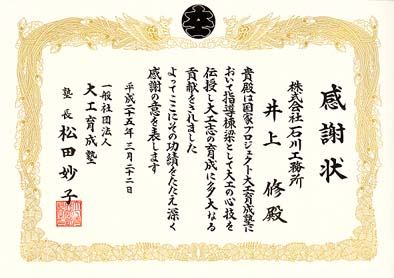 感謝状
株式会社 石川工務所
井上 修殿
貴殿は国家プロジェクト大工育成塾に
おいて指導棟梁として大工の心技を
伝授し大工志の育成に多大なる
貢献をされました
よってここにその功績をたたえ深く
感謝の意を表します
平成二十五年 三月二十二日
一般社団法人
大工育成塾
塾長 松田妙子